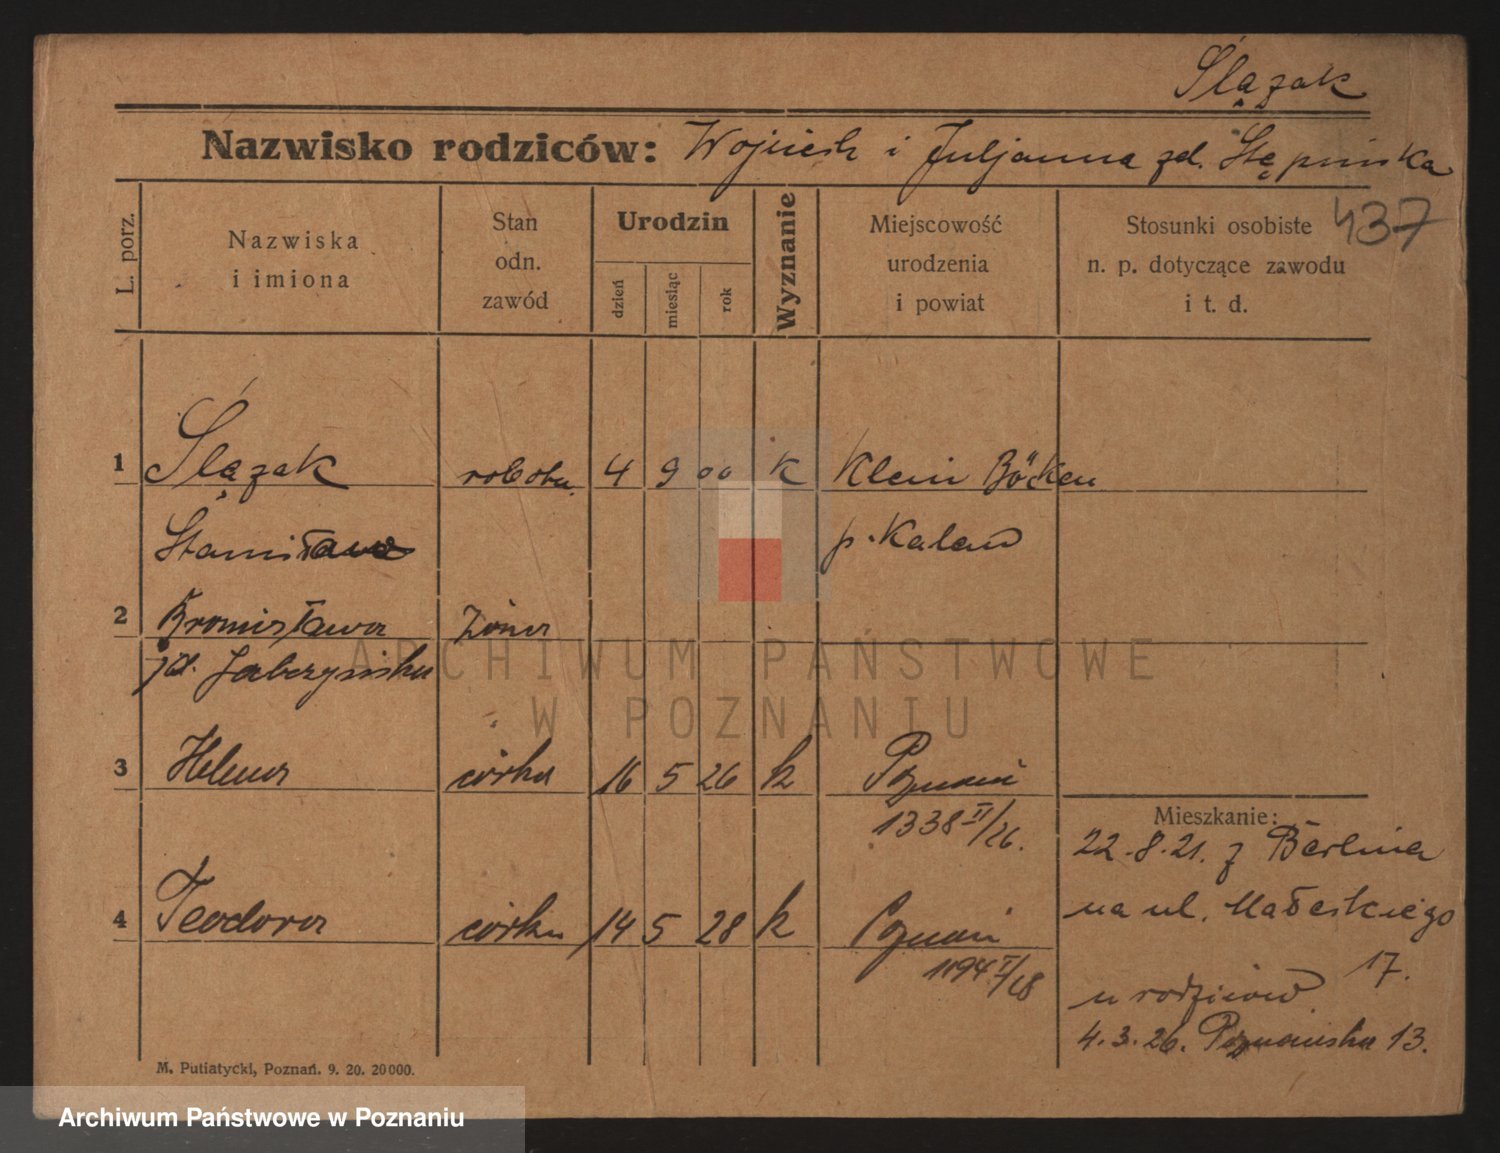 Ślązak
Nazwisko rodziców: Wojciech i Juljanna zd. Stępińska
437
L. porz.
Nazwiska
i imiona
Stan
odn.
zawód
Urodzin
dzień
miesiąc
rok
Wyznanie
Miejscowość
urodzenia
i powiat
Stosunki osobiste
n. p. dotyczące zawodu
i t. d.
1 Ślązak robotn. 4 9 00 k Klein Böcken
Stanisław p. Kalau
2 Bronisława żona
zd. Jabczyńska
3 Helena córka 16 5 26 k Poznań
1338 II/26.
4 Teodora córka 14 5 28 k Poznań
1194 I/28
Mieszkanie:
22.8.21. z Berlina
na ul. Małeckiego
17.
u rodziców
4.3.26. Poznańska 13.
M. Putiatycki, Poznań. 9. 20. 20000.
ARCHIWUM PAŃSTWOWE
W POZNANIU
Archiwum Państwowe w Poznaniu